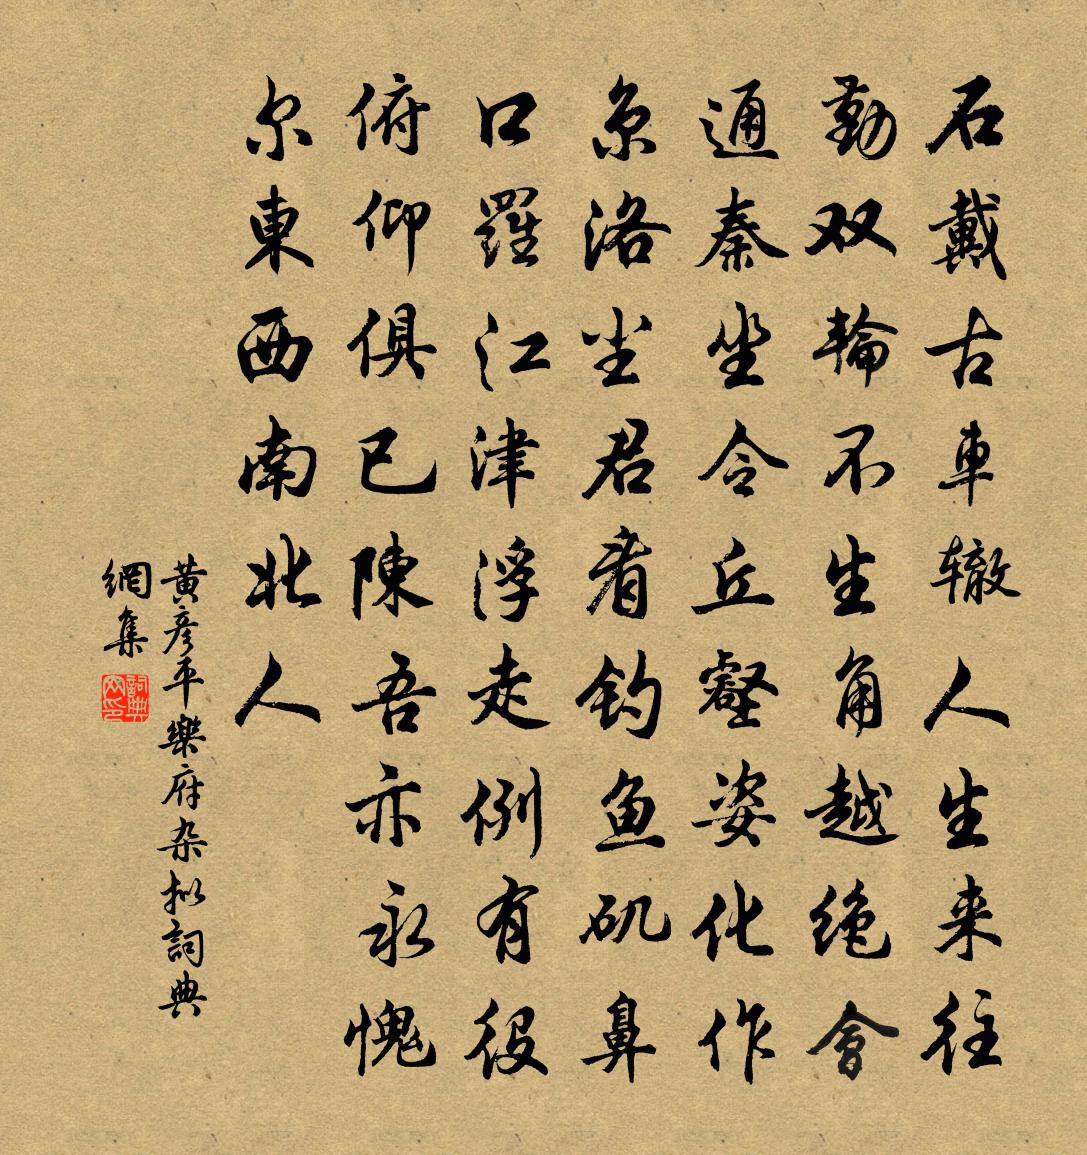 石戴古車辙人生来往
勤双輪不生角越绝會
通秦坐令丘壑姿化作
京洛尘君看钓鱼矶鼻
口羅江津浮走例有役
俯仰俱已陳吾亦永愧
尔東西南北人
黄彦平樂府杂拟詞典
網集
詞典網印